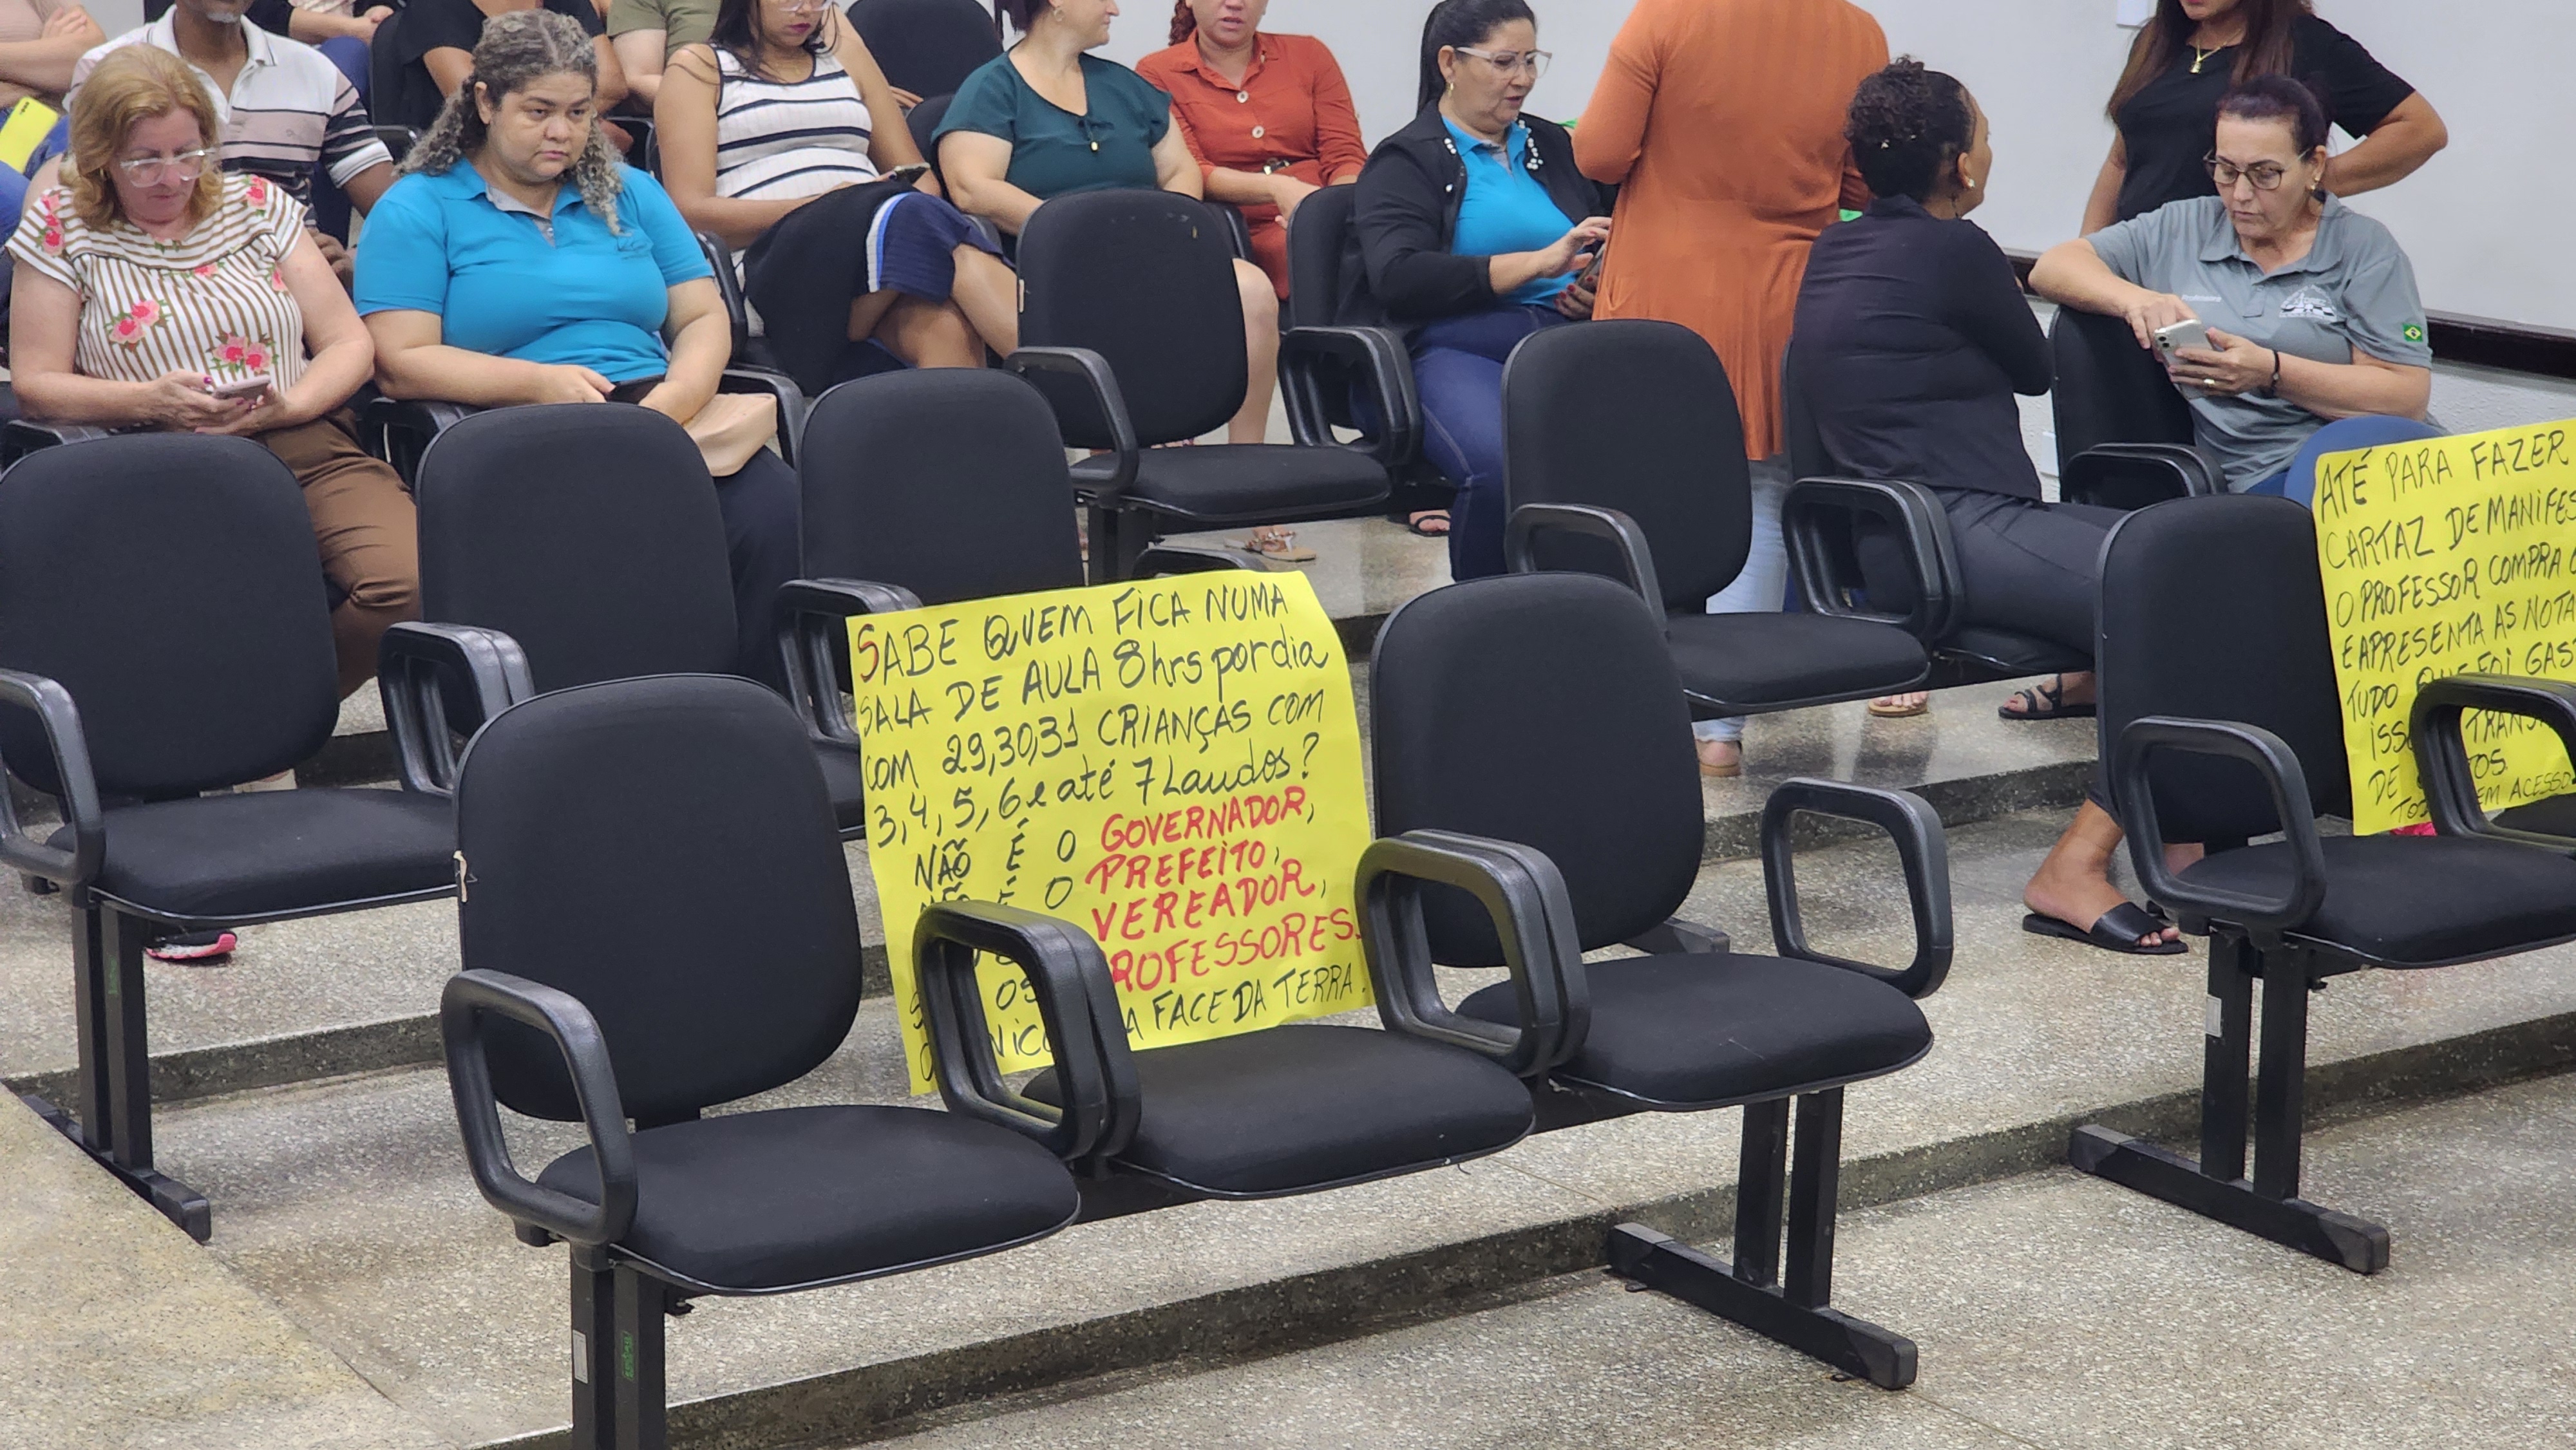 SABE QUEM FICA NUMA
SALA DE AULA 8hrs por dia
COM 29,30,31 CRIANÇAS COM
3,4,5,6 e até 7 Laudos?
NÃO É O GOVERNADOR,
NÃO É O PREFEITO,
VEREADOR,
PROFESSORES.
OS
A FACE DA TERRA.
ATÉ PARA FAZER
CARTAZ DE MANIFES
O PROFESSOR COMPRA
E APRESENTA AS NOTA
TUDO QUE FOI GAS
ISSO TRANS
DE
EM ACESSO
Professora